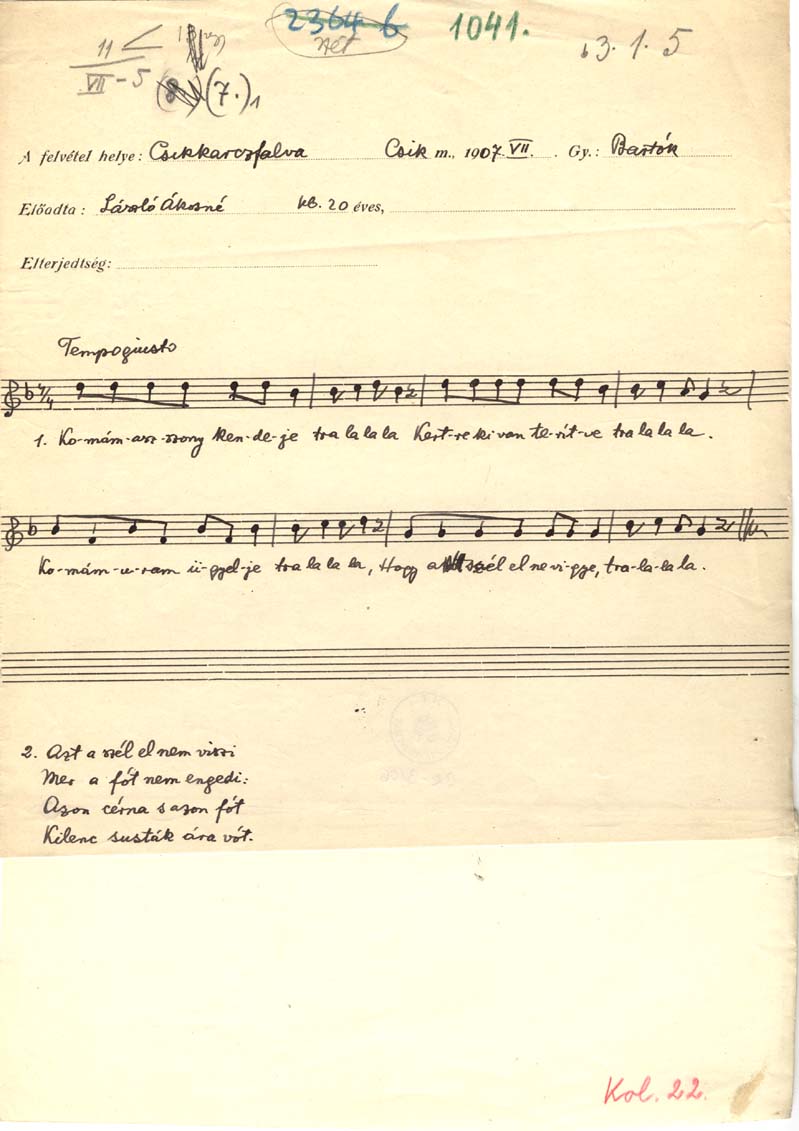 2364 b
1041.
nét
11
VII - 5
(8) (7.)1
b 3. 1. 5
A felvétel helye: Csikkarczfalva Csik m., 1907 VII. Gy.: Bartók
Előadta: László Ákosné kb. 20 éves,
Elterjedtség:
Tempogiusto
7/4
1. Ko-mám-asz-szony ken-de-je tra la la la Kert-re ki van te-rít-ve tra la la la.
Ko-mám-u-ram ü-gyel-je tra la la la, Hogy a szél el ne vi-gye, tra-la-la la.
2. Azt a szél el nem viszi
Mer a fót nem engedi:
Azon cérna s azon fót
Kilenc susták ára vót.
Kol. 22.